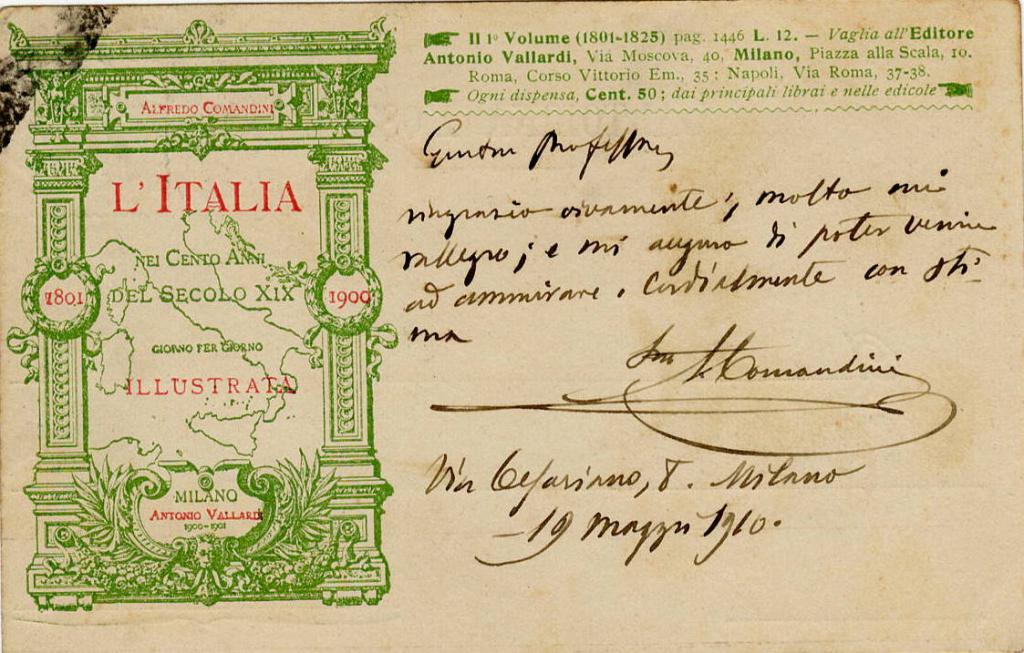 Il 1º Volume (1801-1825) pag. 1446 L. 12. — Vaglia all'Editore
Antonio Vallardi, Via Moscova, 40, Milano, Piazza alla Scala, 10.
Roma, Corso Vittorio Em., 35; Napoli, Via Roma, 37-38.
Ogni dispensa, Cent. 50; dai principali librai e nelle edicole
ALFREDO COMANDINI
L'ITALIA
NEI CENTO ANNI
1801 DEL SECOLO XIX 1900
GIORNO PER GIORNO
ILLUSTRATA
MILANO
ANTONIO VALLARDI
1900-1901
Professore,
ringrazio vivamente; molto mi
rallegro; e mi auguro di poter venire
ad ammirare. Cordialmente con sti-
ma
A. Comandini
Via Cesariano, 8. Milano
— 19 Maggio 1910.